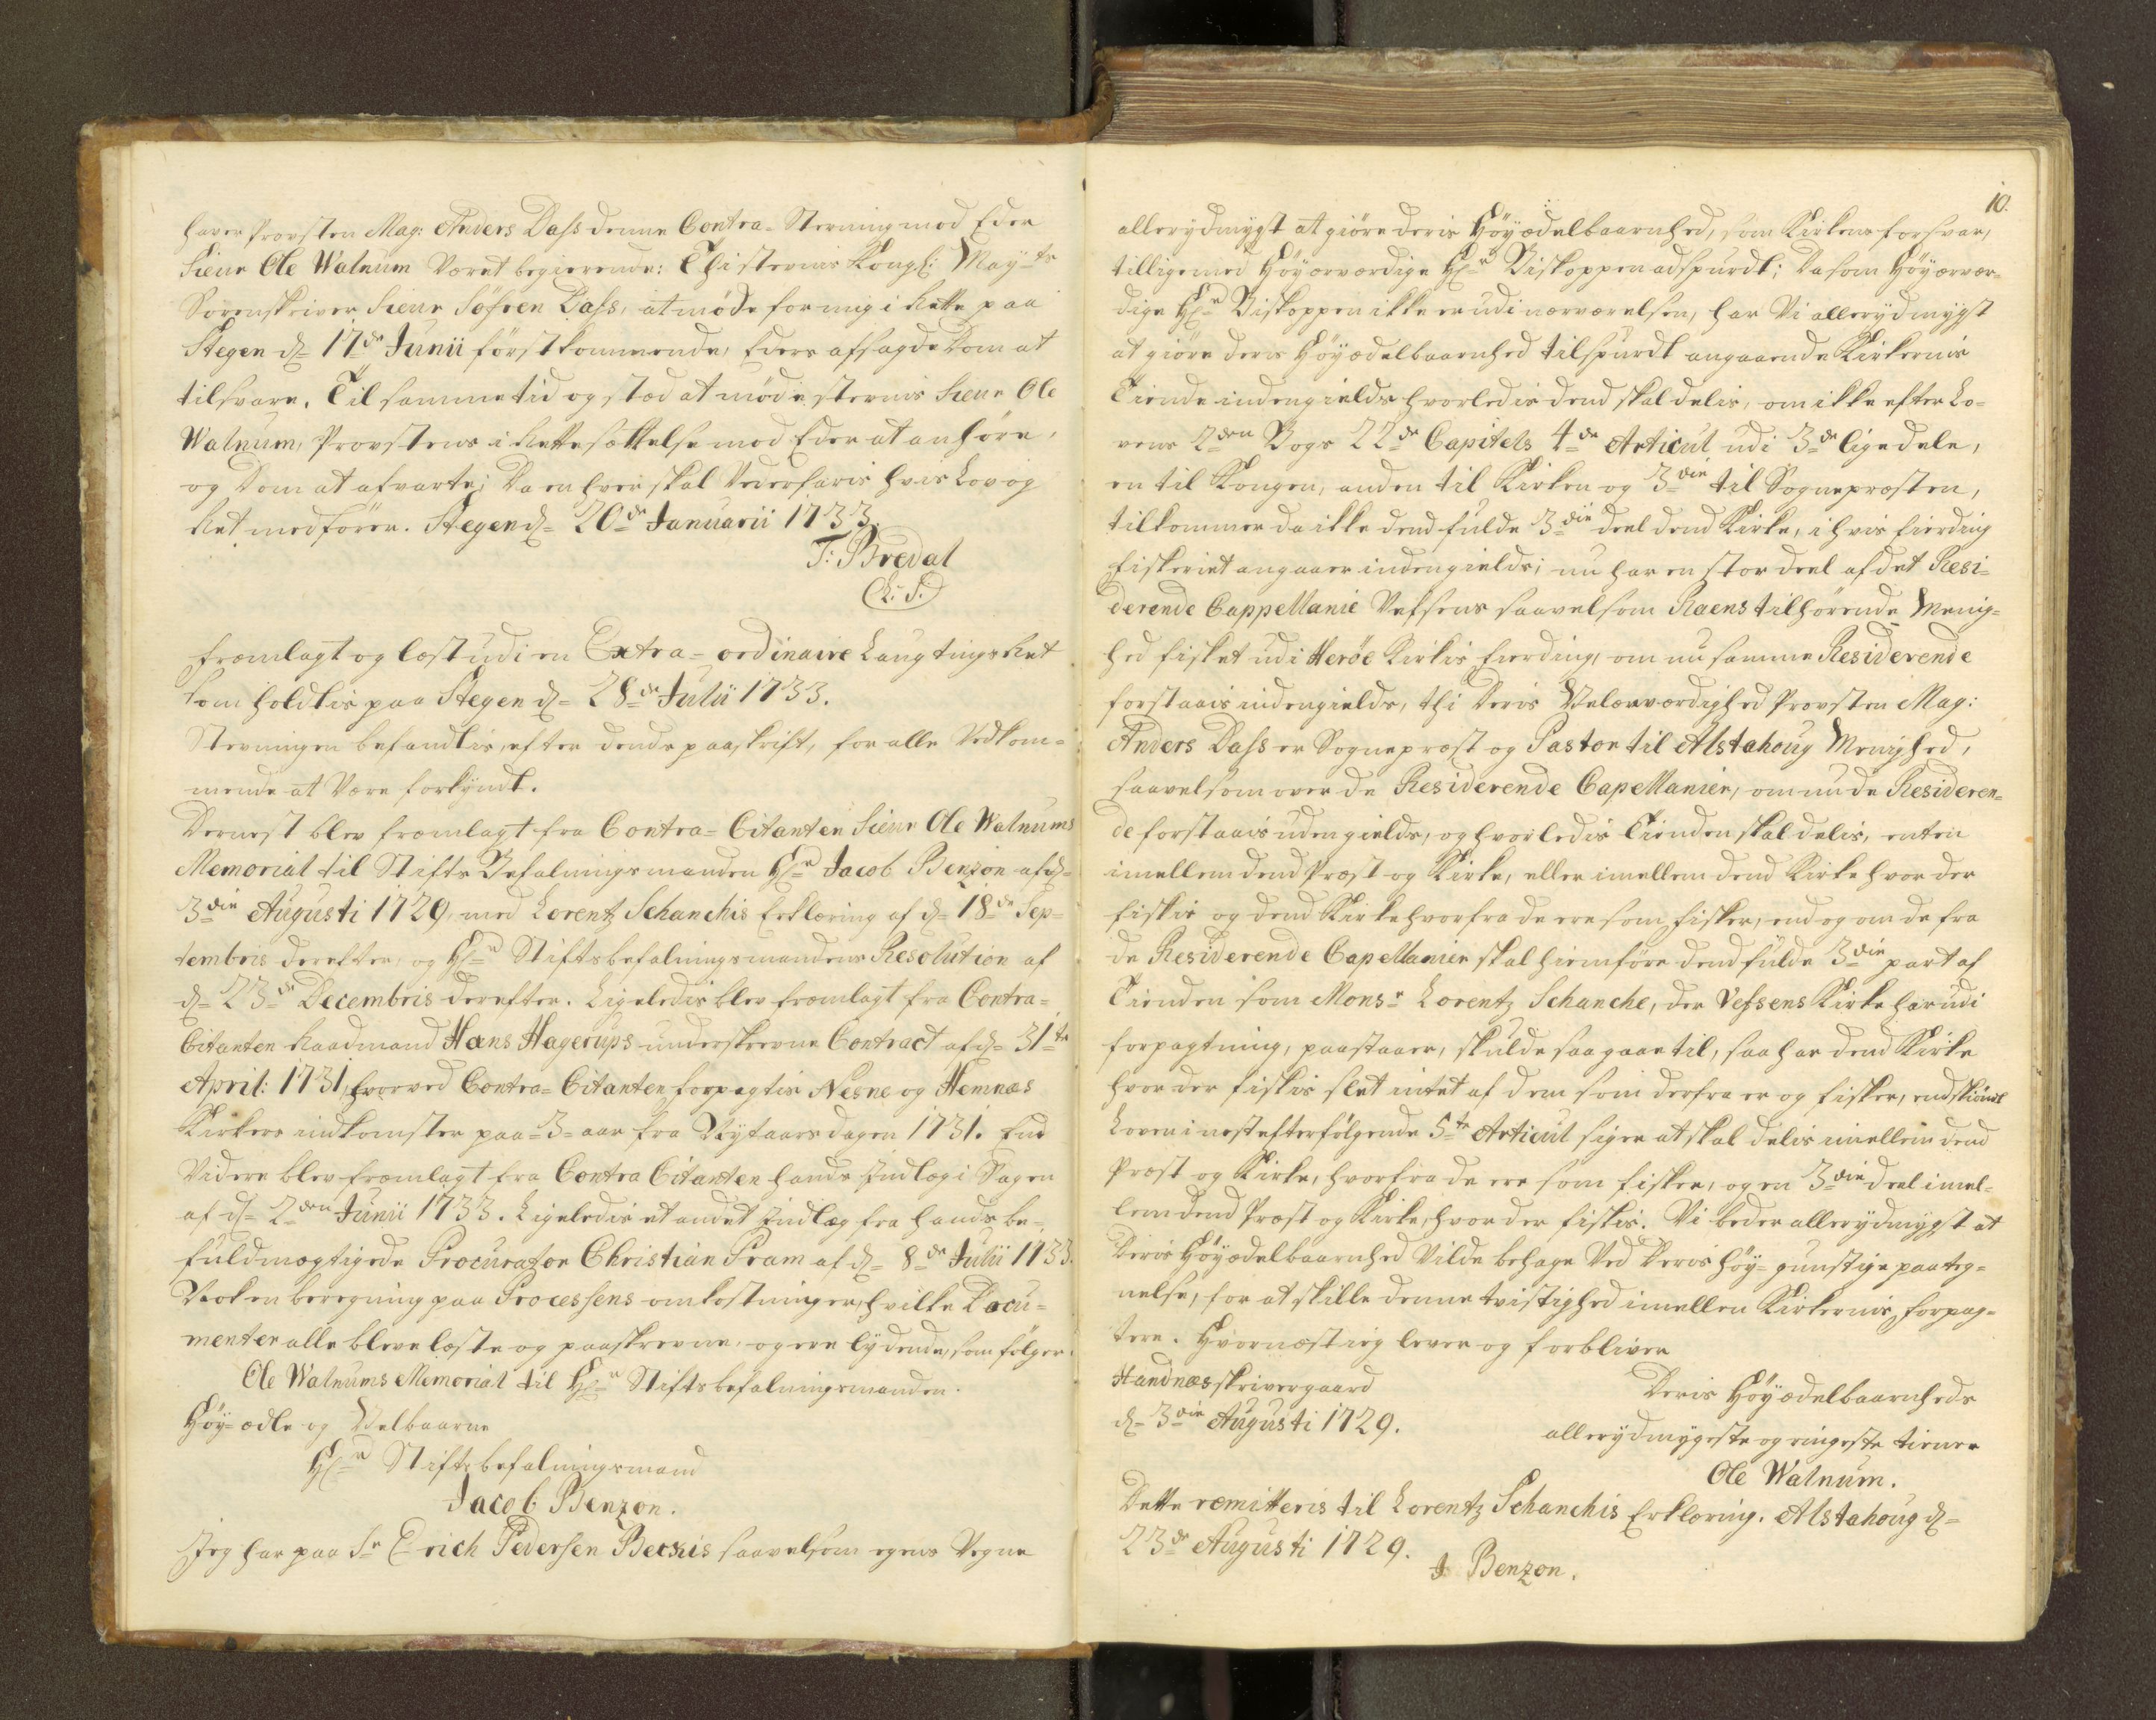 haver Provsten Mag: Anders Dass denne Contra-Stevning mod Eder
Sieur Ole Walnum Været begierende: Thi stevnis Kongl: May-ts
Sorenskriver Sieur Söfren Dass, at møde for mig i Rette paa
Stegen d- 17de Junii först kommende, Eders afsagde Dom at
tilsvare. Til samme tid og stæd at møde stevnis Sieur Ole
Walnum, Provstens i Rettesættelse mod Eder at anhöre,
og Dom at afvarte; Da en hver skal Vederfaris hvis Lov og
Ret medfören. Stegen d- 20de Januarii 1733.
T: Bredal
(L. S.)
Fremlagt og læst udi en Extra-ordinaire Laugtings Ret
som holdtis paa Stegen d- 28de Julii 1733.
Stevningen befandtis, efter dends paaskrift, for alle Vedkom-
mende at Være forkyndt.
Dernest blev fremlagt fra Contra-Citanten Sieur Ole Walnums
Memorial til Stifts Befalningsmanden Hr Jacob Benzon af d-
3die Augusti 1729, med Lorentz Schanchis Erklæring af d- 18de Sep-
tembris derefter, og Hr Stiftsbefalningsmandens Resolution af
d- 23de Decembris derefter. Ligeledis blev fremlagt fra Contra-
Citanten Raadmand Hans Hagerups underskrevne Contract af d- 31te
April: 1731, hvorved Contra-Citanten forpagtis Nesne og Hemnæs
Kirkers indkomster paa 3 aar fra Nytaarsdagen 1731. End
Videre blev fremlagt fra Contra Citanten hands Indlæg i Sagen
af d- 2den Junii 1733. Ligeledis et andet Indlæg fra hands be-
fuldmægtigede Procurator Christian Pram af d- 8de Julii 1733.
Nok en beregning paa Processens omkostninger, hvilke Docu-
menter alle bleve læste og paaskrevne, og ere lydende, som fölger:
Ole Walnums Memorial til Hr Stiftsbefalningsmanden.
Höy-ædle og Velbaarne
Hr Stiftsbefalningsmand
Jacob Benzon.
Jeg har paa Sr Erich Pedersen Beckis saavelsom egens Vegne
10.
allerydmygst at giöre deris Höyædelbaarnhed, som Kirkens forsvar,
tilligemed Höyærværdige Hr Biskoppen adspurdt; Da som Höyærvær-
dige Hr Biskoppen ikke er udi nærværelsen, har Vi allerydmygst
at giöre deris Höyædelbaarnhed tilspurdt angaaende Kirkernis
Tiende indengields hvorledis dend skal delis, om ikke efter Lo-
vens 2den Bogs 22de Capitels 4de Articul udi 3de lige dele,
en til Kongen, anden til Kirken og 3die til Sognepræsten,
tilkommer da ikke dend fulde 3die deel dend Kirke, i hvis fierding
fiskeriet angaaer indengields; nu har en stor deel af det Resi-
derende Cappellanie Vefsens saavelsom Raens tilhörende Menig-
hed fisket udi Heröe Kirkis fierding, om nu samme Residerende
forstaais indengields, thi deris Velærværdighed Provsten Mag:
Anders Dass er Sognepræst og Pastor til Alstahoug Menighed,
saavelsom over de Residerende Capellanier, om nu de Residerende
de forstaais udengields, og hvorledis Tienden skal delis, enten
imellem dend Præst og Kirke, eller imellem dend Kirke hvor der
fiskis og dend Kirke hvorfra de ere som fisker, end og om de fra
de Residerende Capellanier skal hiemföre dend fulde 3die part af
Tienden som Monsr Lorentz Schanche, der Vefsens Kirke har udi
forpagtning, paastaaer, skulde saa gaae til, saa har dend Kirke
hvor der fiskis slet intet af dem som derfra er og fisker, endskiönt
Loven i nest efterfölgende 5te Articul siger at skal delis imellem dend
Præst og Kirke, hvorfra de ere som fisker, og en 3die deel imel-
lem dend Præst og Kirke, hvor der fiskis. Vi beder allerydmygst at
Deris Höyædelbaarnhed Vilde behage Ved deris höy-gunstige paateg-
nelse, for at skille denne tvistighed imellem Kirkernis forpag-
tere. Hvornæst ieg lever og forbliver
Handnæs skrivergaard
d- 3die Augusti 1729.
Deris Höyædelbaarnheds
allerydmygeste og ringeste tiener
Ole Walnum.
Dette remitteris til Lorentz Schanchis Erklæring. Alstahoug d-
23de Augusti 1729.
J. Benzon.